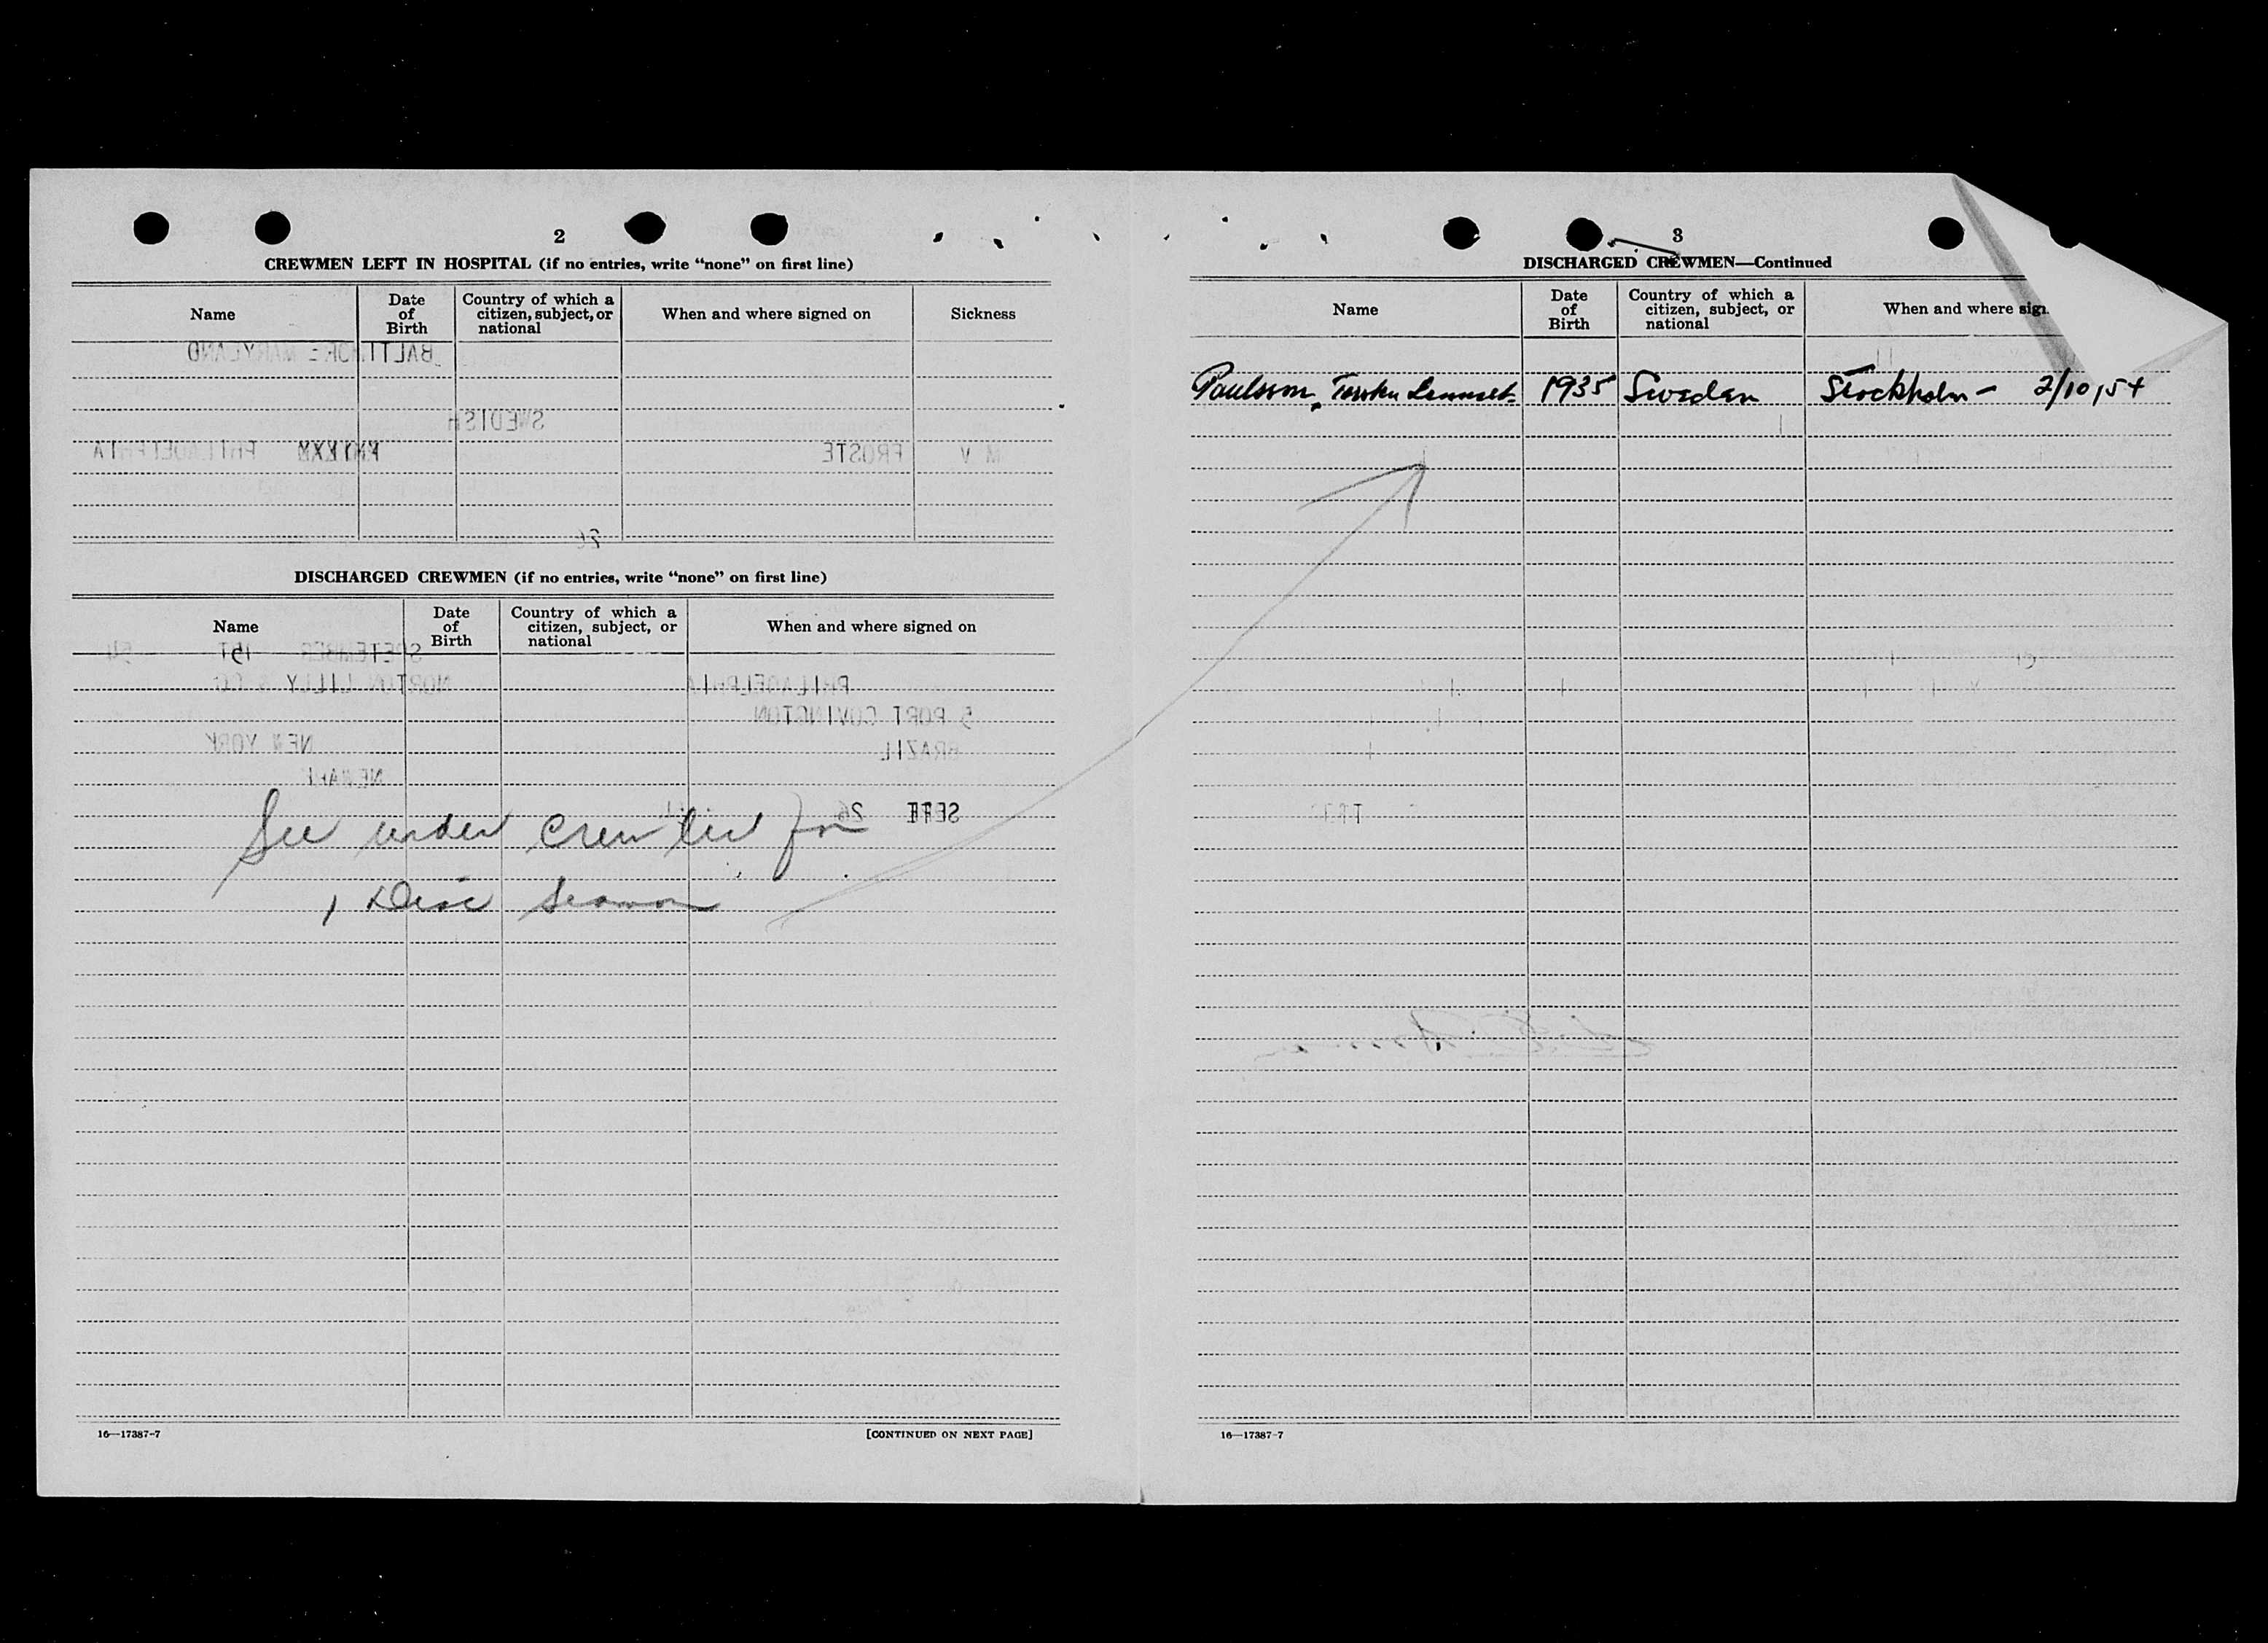 2
CREWMEN LEFT IN HOSPITAL (if no entries, write "none" on first line)
Name
Date of Birth
Country of which a citizen, subject, or national
When and where signed on
Sickness
BALTIMORE MARYLAND
SWEDISH
M V FROSTE PHILADELPHIA
26
DISCHARGED CREWMEN (if no entries, write "none" on first line)
Name
Date of Birth
Country of which a citizen, subject, or national
When and where signed on
54
NORTON LILLY & CO
PHILADELPHIA
5 PORT COVINGTON
BRAZIL
NEW YORK
NEWARK
26
See under crew list for
1 Disc seaman
16—17387-7
[CONTINUED ON NEXT PAGE]
3
DISCHARGED CREWMEN—Continued
Name
Date of Birth
Country of which a citizen, subject, or national
When and where
Paulsson, 1935 Sweden Stockholm – 2/10/54
16—17387-7